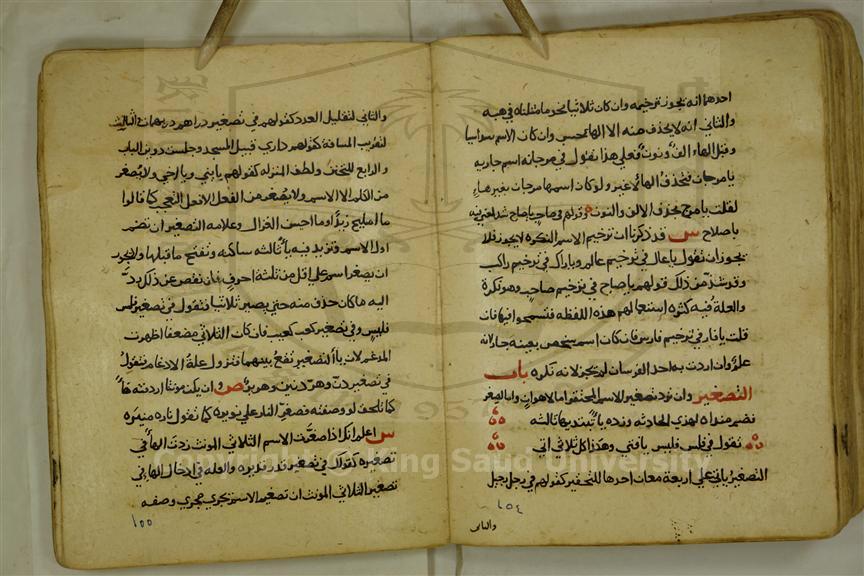 احدهما انه يجوز ترخيمه وان كان ثلاثيا نحو ما مثلناه في هبه
والثاني انه لا يحذف منه الا الها فحسب وان كان الاسم سداسيا
وقبل الهاء الف ونون فعلي هذا تقول في مرجانه اسم جاريه
يا مرجان فتحذف الها لا غير ولو كان اسمها مرجان بغير هاء
لقلت يا مرج بحذف الالف والنون وقولهم في صاحب يا صاح شذ لمعني فيه
باصلاح س قد ذكرنا ان ترخيم الاسم النكره لا يجوز فلا
يجوز ان تقول يا عال في ترخيم عالم ويا راك في ترخيم راكب
وقد شذ من ذلك قولهم يا صاح في ترخيم صاحب وهو نكرة
والعلة فيه كثرة استعمالهم هذه اللفظه فتسمحوا فيها فان
قلت يا فار في ترخيم فارس فان كان اسم شخص بعينه جاز لانه
علم وان اردت به احد الفرسان لم يجز لانه نكره باب
التصغير وان ترد تصغير الاسم المحتقر اما لاهوان واما لصغر
فضم مبداه لهذي الحادثه وزده ياء تبتدي بها ثالثه
تقول في فلس فليس يا فتي وهكذا كل ثلاثي اتي
التصغير ياتي علي اربعة معان احدها للتحقير كقولهم في رجل رجيل
والثاني
١٥٤
والثاني لتقليل العدد كقولهم في تصغير دراهم دريهمات والثالث
لتقريب المسافة كقولهم داري قبيل المسجد وجلست دوين الباب
والرابع للتحنن ولطف المنزله كقولهم يا بني ويا اخي ولا يصغر
من الكلم الا الاسم ولا يصغر من الفعل الا فعل التعجب كما قالوا
ما امليح زيدا وما احيسن الغزال وعلامه التصغير ان تضم
اول الاسم وتزيد فيه ياء ثالثه ساكنه وتفتح ما قبلها ولا يجوز
ان يصغر اسم علي اقل من ثلثة احرف فان نقص عن ذلك رد
اليه ما كان حذف منه حتي يصير ثلاثيا فتقول في تصغير فلس
فليس وفي تصغير كعب كعيب فان كان الثلاثي مضعفا اظهرت
المدغم لان ياء التصغير تقع بينهما فتزول علة الادغام فتقول
في تصغير دن وهر دنين وهرير ص وان يكن مونثا اردفته هاء
كما تلحق لو وصفته فصغر النار علي نويره كما تقول ناره منيره
س اعلم انك اذا صغرت الاسم الثلاثي المونث زدت الهاء في
تصغيره كقولك في تصغير قدر قديره والعله في ادخال الها في
تصغير الثلاثي المونث ان تصغير الاسم يجري مجري وصفه
١٥٥
Copyright © King Saud University
1957